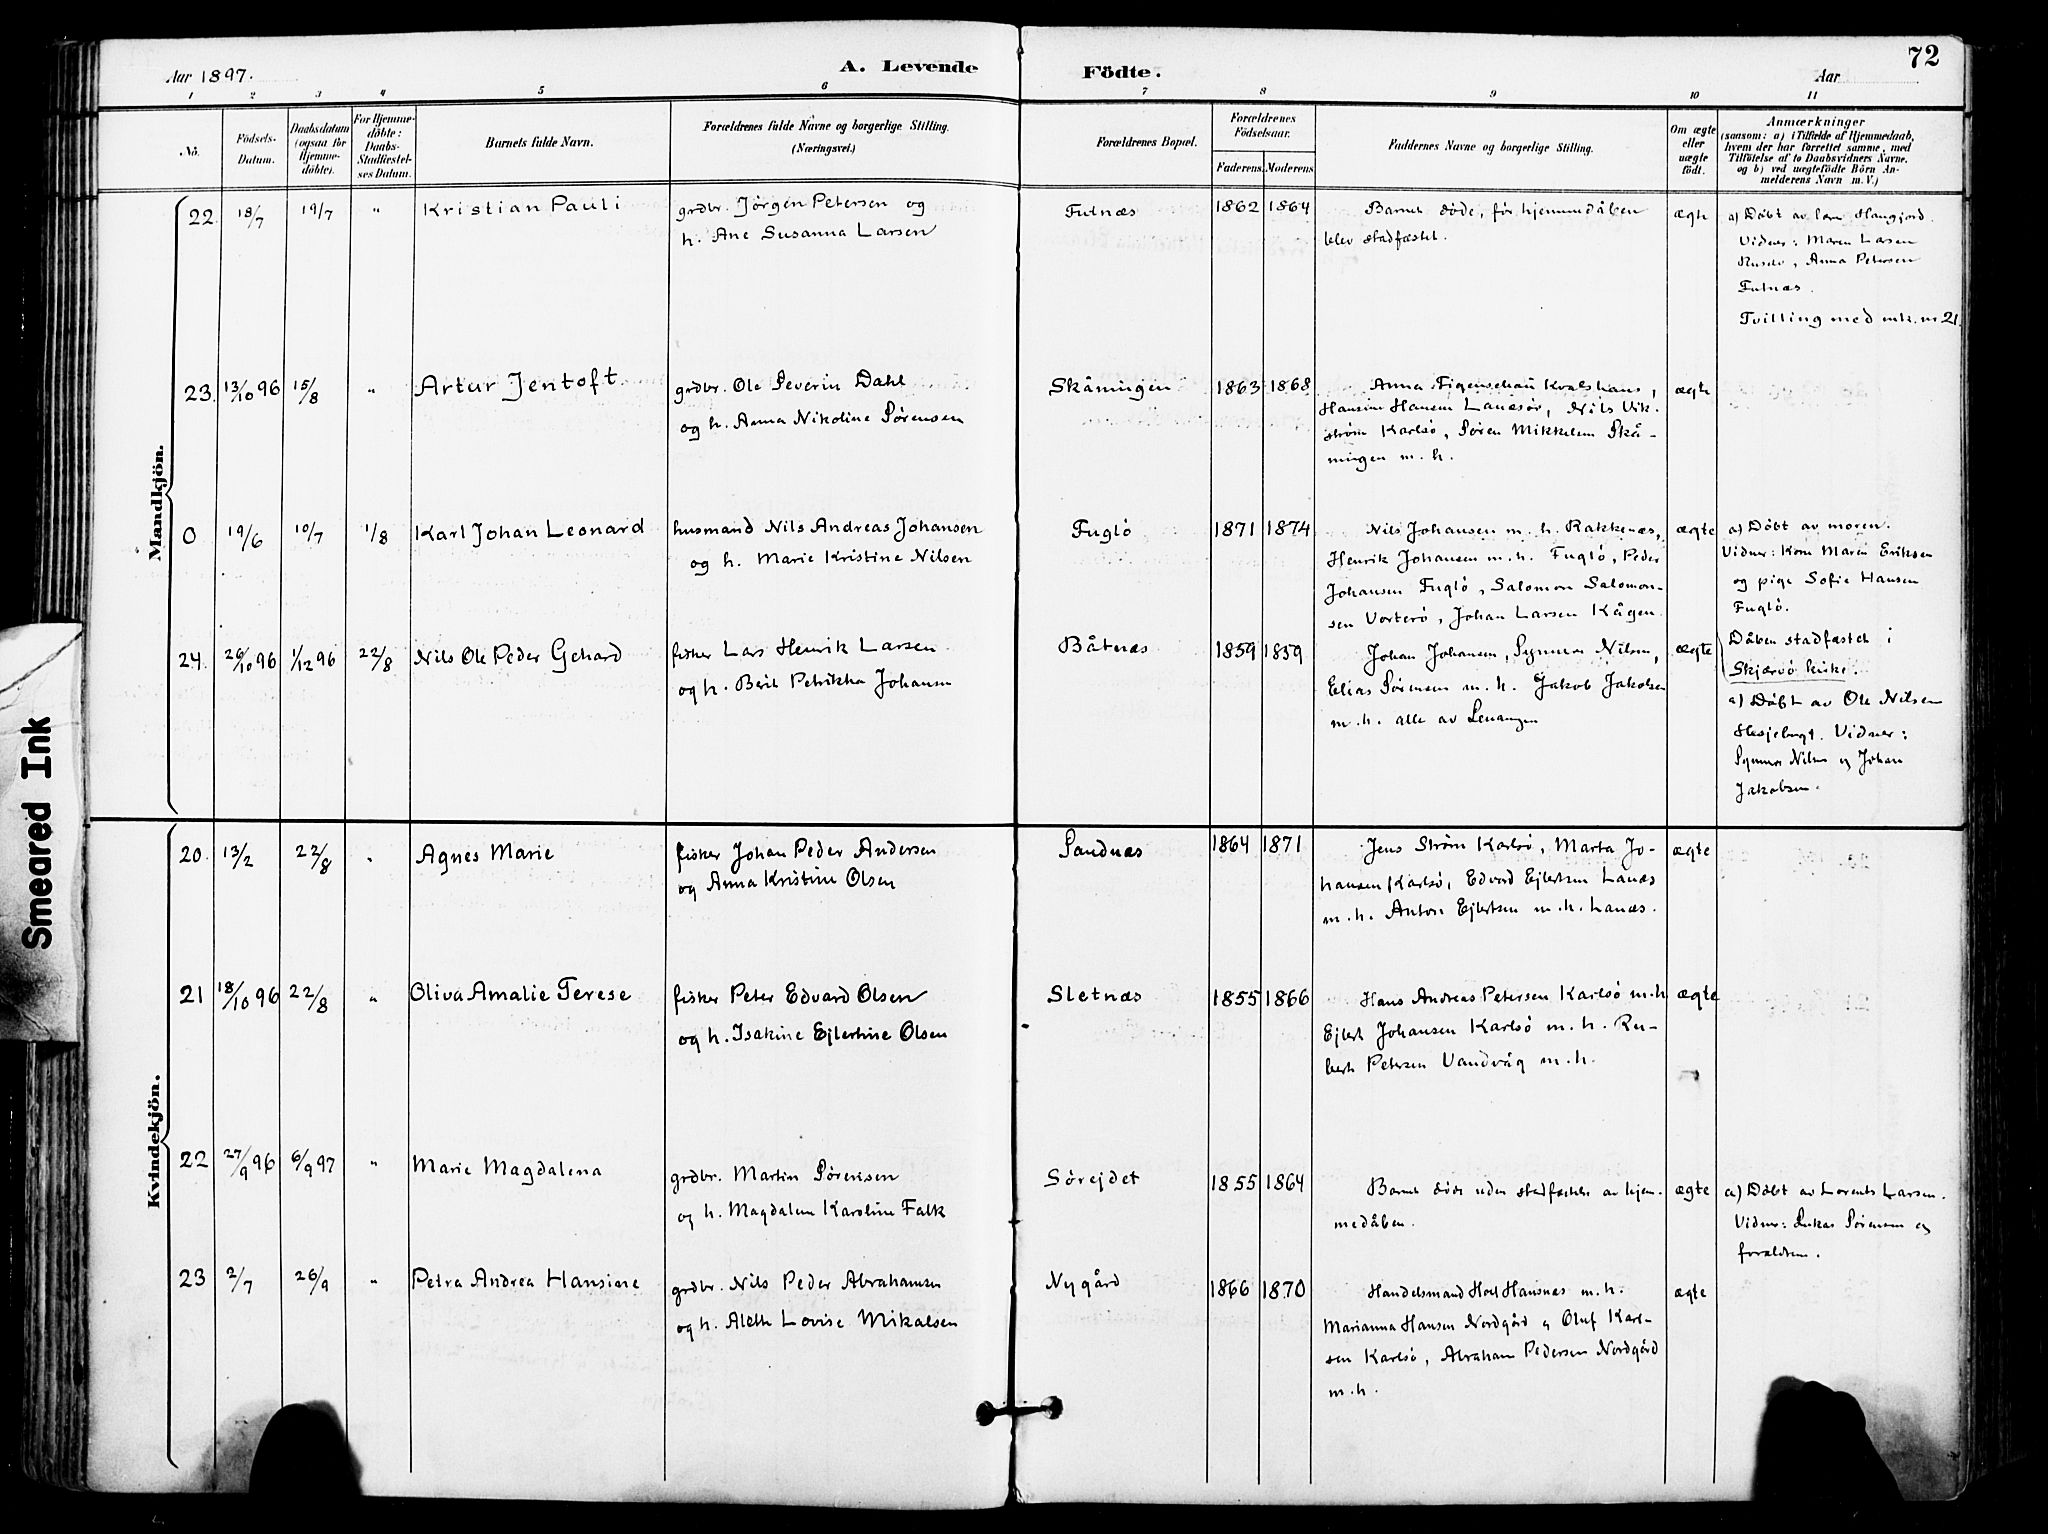 Aar 1897.
A. Levende Födte.
Aar
72
1 2 3 4 5 6 7 8 9 10 11
No.
Födsels-
Datum.
Daabsdatum
(ogsaa for
Hjemme-
döbte).
For Hjemme-
döbte:
Daabs-
Stadfæstel-
ses Datum.
Barnets fulde Navn.
Forældrenes fulde Navne og borgerlige Stilling.
(Næringsvei.)
Forældrenes Bopæl.
Forældrenes
Födselsaar.
Faderens. Moderens
Faddernes Navne og borgerlige Stilling.
Om ægte
eller
uægte
födt.
Anmærkninger
(saasom: a) i Tilfælde af Hjemmedaab,
hvem der har forrettet samme, med
Tilföielse af to Daabsvidners Navne.
og b) ved uægtefödte Börn An-
melderens Navn m. V.)
Mandkjön.
22. 18/7 19/7 "
Kristian Pauli
grdbr. Jörgen Petersen og
h. Ane Susanna Larsen
Futnæs
1862 1864
Barnet döde, för hjemmedåben
blev stadfæstet.
ægte
a) Döbt av
Vidner: Maren Larsen
Anna Petersen
Futnæs.
Tvilling med mk. nr 21.
23. 13/10 96 15/8 "
Artur Jentoft
grdbr. Ole Severin Dahl
og h. Anna Nikoline Sörensen
Skåningen
1863 1868
Anna Figenschau Kvalshaus,
Hansine Hansen Lanesör, Nils Vik-
ström Karlsö, Sören Mikkelsen Skå-
ningen m. h.
ægte
0 19/6 10/7 1/8
Karl Johan Leonard
husmand Nils Andreas Johansen
og h. Marie Kristine Nilsen
Fuglö
1871 1874
Nils Johansen m. h. Rakkenæs,
Henrik Johansen m. h. Fuglö, Peder
Johansen Fuglö, Salomon Salomon-
sen Vorterö, Johan Larsen Kågen.
ægte
a) Döbt av moren.
Vidner: Kone Maren Eriksen
og pige Sofie Hansen
Fuglö.
24. 26/10 96 1/12 96 22/8
Nils Ole Peder Gehard
fisker Lars Henrik Larsen
og h. Berit Petrikka Johansen
Båtnæs
1859 1859
Johan Johansen, Synnøve Nilsen,
Elias Sörensen m. h. Jakob Jakobsen
m. h. alle av Lenangen
ægte
Dåben stadfæstet i
Skjærvö kirke.
a) Döbt av Ole Nilsen
Vidner:
Nilsen og Johan
Jakobsen.
Kvindekjön.
20. 13/2 22/8 "
Agnes Marie
fisker Johan Peder Andersen
og Anna Kristine Olsen
Sandnæs
1864 1871
Jens Ström Karlsö, Marta Jo-
hansen Karlsö, Edvard Ejlertsen Lanæs
m. h. Anton Ejlertsen m. h. Lanæs.
ægte
21 18/10 96 22/8 "
Oliva Amalie Terese
fisker Peter Edvard Olsen
og h. Isakine Ejlertine Olsen
Sletnæs
1855 1866
Hans Andreas Petersen Karlsö m. h
Ejlert Johansen Karlsö m. h. Ru-
bert Petersen Vandvåg m. h.
ægte
22 27/9 96 6/9 97 "
Marie Magdalena
grdbr. Martin Sörensen
og h. Magdalene Karoline Falk
Sörejdet
1855 1864
Barnet döde uden stadfæstelse av hjem-
medåben.
ægte
a) Döbt av Lorents Larsen.
Vidner: Lukas Sörensen og
forældrene.
23 2/7 26/9 "
Petra Andrea Hansine
grdbr. Nils Peder Abrahamsen
og h. Aleth Lovise Mikalsen
Nygård
1866 1870
Handelsmand Hoel Hansnæs m. h.
Marianna Hansen Nordgård og Oluf Karl-
sen Karlsö, Abraham Pedersen Nordgård
m. h.
ægte
Smeared Ink